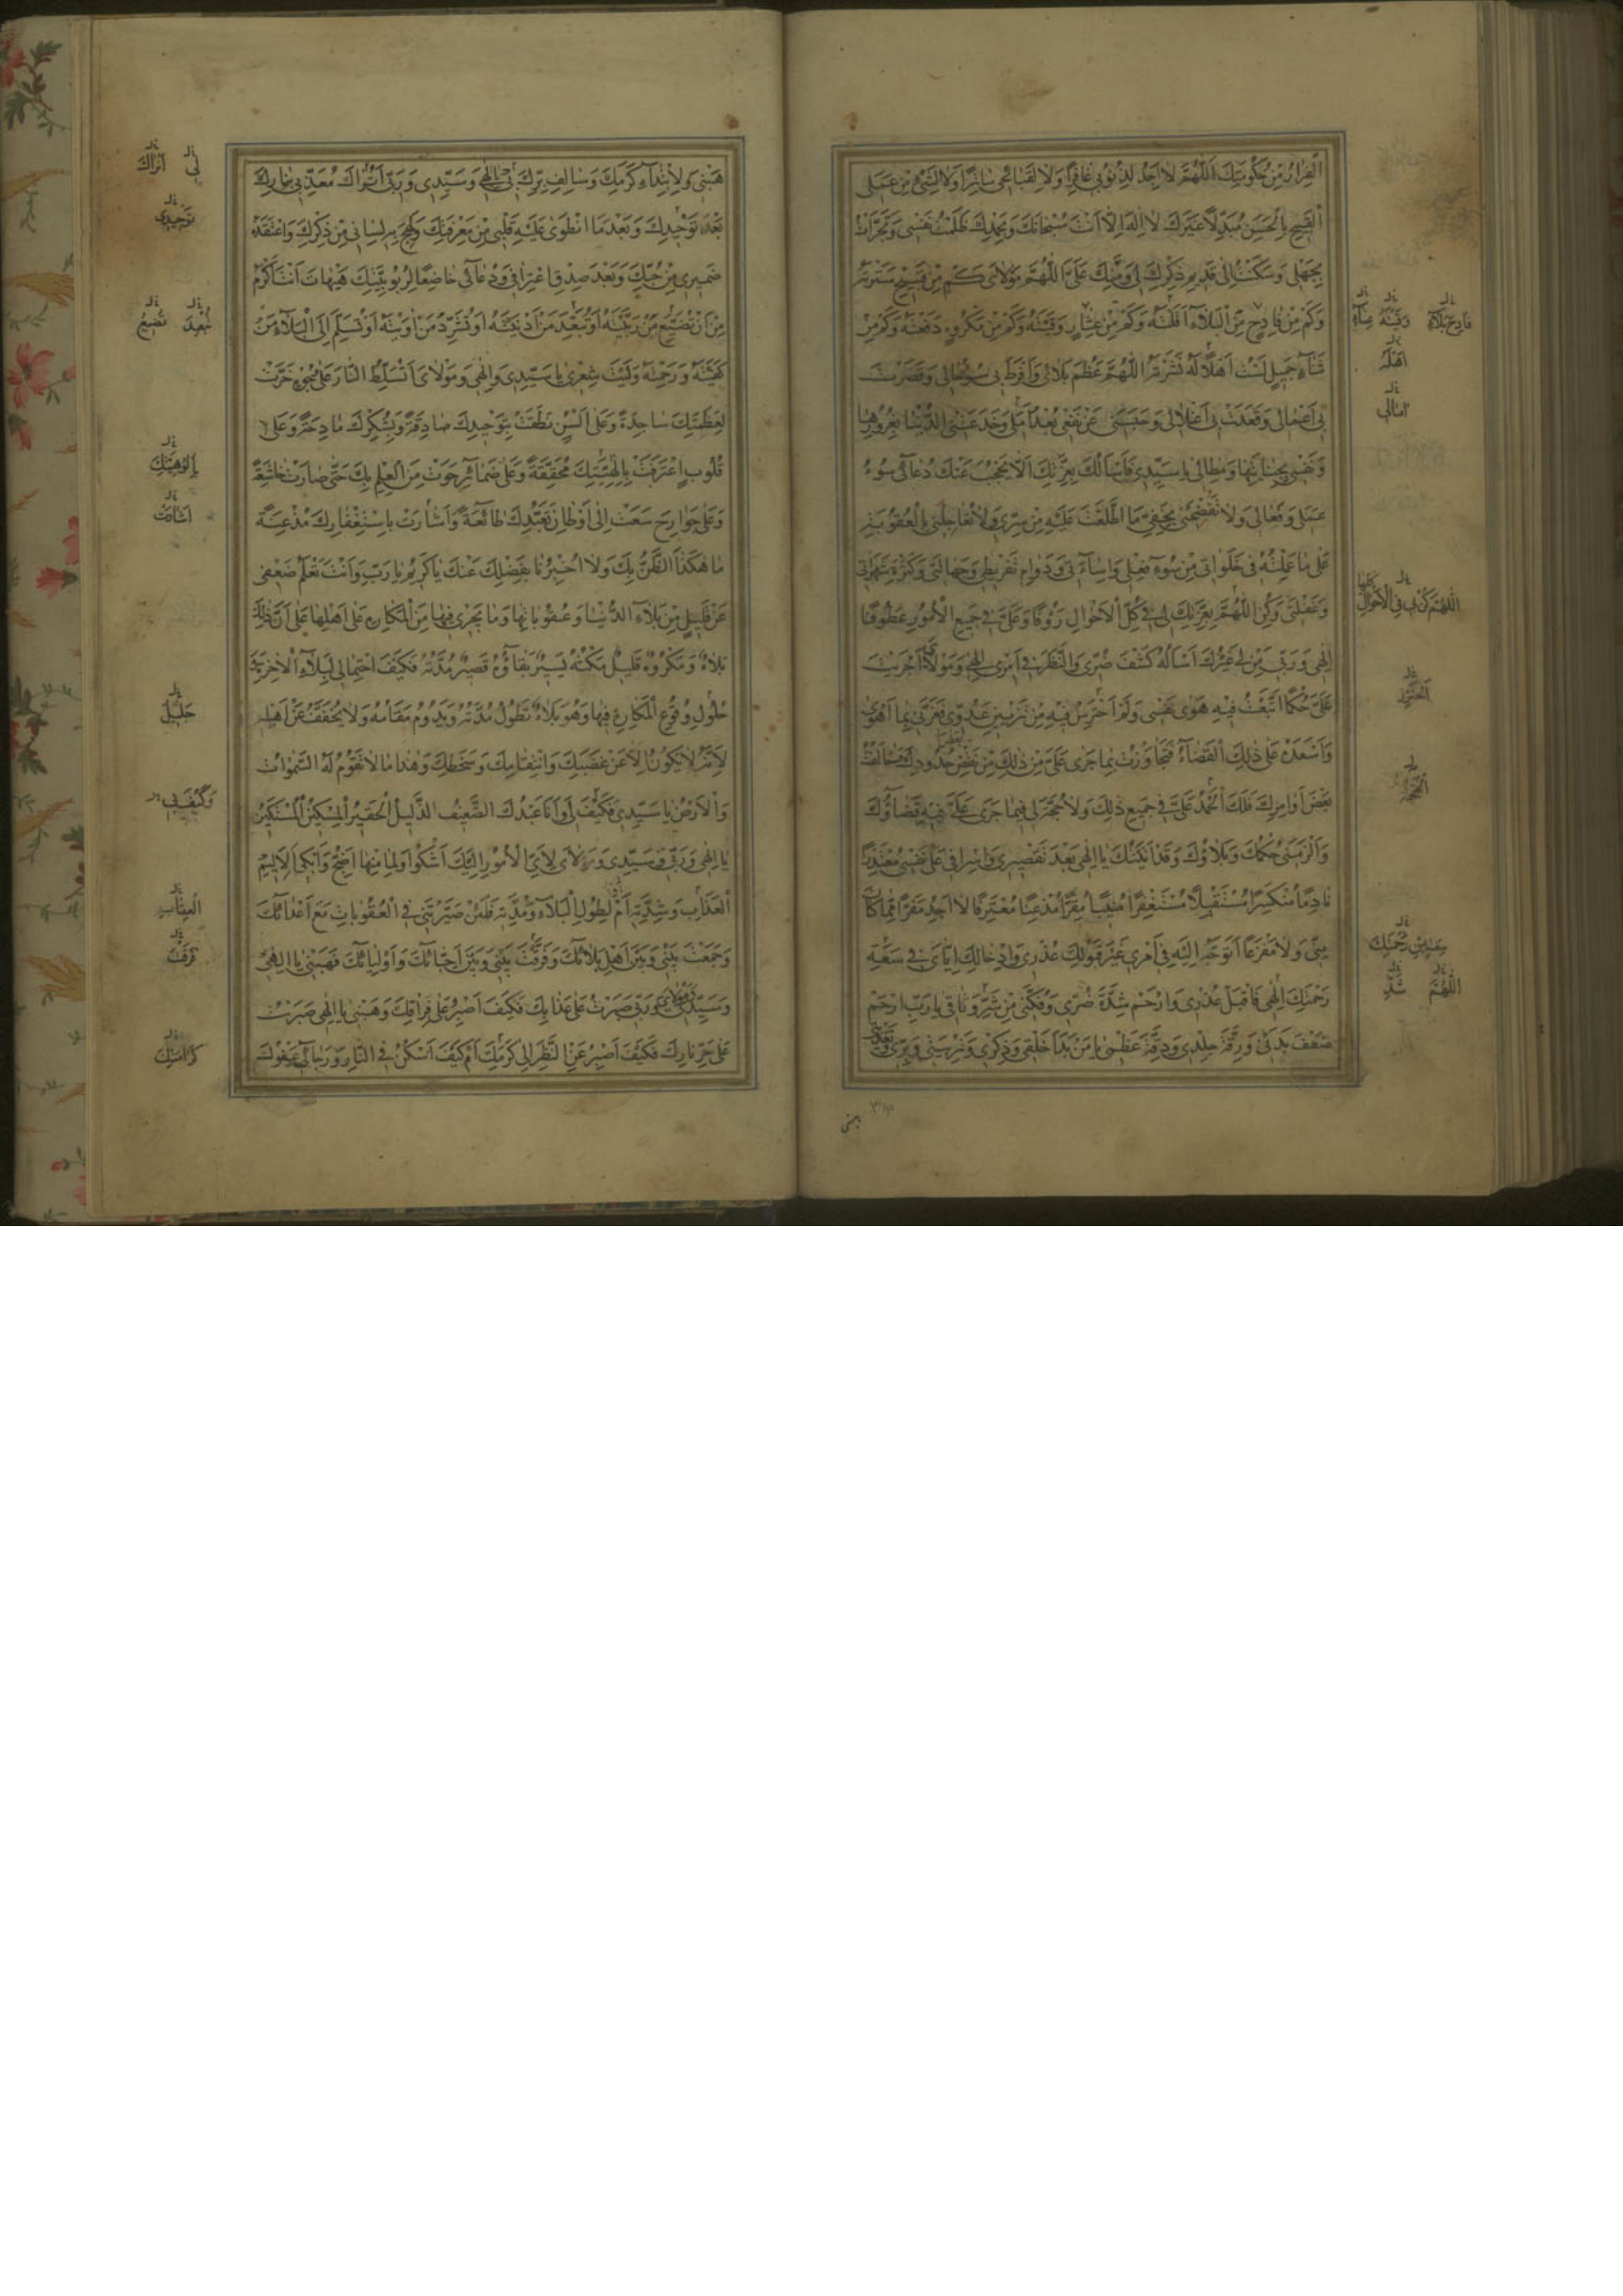 الْفِرَارُ مِنْ حُكُومَتِكَ اَللّٰهُمَّ لَا اَجِدُ لِذُنُوبِي غَافِرًا وَلَا لِقَبَائِحِي سَاتِرًا وَلَا لِشَيْءٍ مِنْ عَمَلِي
الْقَبِيحِ بِالْحَسَنِ مُبَدِّلًا غَيْرَكَ لَا اِلٰهَ اِلَّا اَنْتَ سُبْحَانَكَ وَبِحَمْدِكَ ظَلَمْتُ نَفْسِي وَتَجَرَّأْتُ
بِجَهْلِي وَسَكَنْتُ اِلَى قَدِيمِ ذِكْرِكَ لِي وَمَنِّكَ عَلَيَّ اَللّٰهُمَّ مَوْلَايَ كَمْ مِنْ قَبِيحٍ سَتَرْتَهُ
وَكَمْ مِنْ فَادِحٍ مِنَ الْبَلَاءِ اَقَلْتَهُ وَكَمْ مِنْ عِثَارٍ وَقَيْتَهُ وَكَمْ مِنْ مَكْرُوهٍ دَفَعْتَهُ وَكَمْ مِنْ
ثَنَاءٍ جَمِيلٍ لَسْتُ اَهْلًا لَهُ نَشَرْتَهُ اَللّٰهُمَّ عَظُمَ بَلَائِي وَاَفْرَطَ بِي سُوءُ حَالِي وَقَصُرَتْ
بِي اَعْمَالِي وَقَعَدَتْ بِي اَغْلَالِي وَحَبَسَنِي عَنْ نَفْعِي بُعْدُ اَمَلِي وَخَدَعَتْنِي الدُّنْيَا بِغُرُورِهَا
وَنَفْسِي بِجِنَايَتِهَا وَمِطَالِي يَا سَيِّدِي فَاَسْاَلُكَ بِعِزَّتِكَ اَلَّا يَحْجُبَ عَنْكَ دُعَائِي سُوءُ
عَمَلِي وَفِعَالِي وَلَا تَفْضَحْنِي بِخَفِيِّ مَا اطَّلَعْتَ عَلَيْهِ مِنْ سِرِّي وَلَا تُعَاجِلْنِي بِالْعُقُوبَةِ
عَلَى مَا عَمِلْتُهُ فِي خَلَوَاتِي مِنْ سُوءِ فِعْلِي وَاِسَاءَتِي وَدَوَامِ تَفْرِيطِي وَجَهَالَتِي وَكَثْرَةِ شَهَوَاتِي
وَغَفْلَتِي وَكُنِ اللّٰهُمَّ بِعِزَّتِكَ لِي فِي كُلِّ الْاَحْوَالِ رَؤُفًا وَعَلَيَّ فِي جَمِيعِ الْاُمُورِ عَطُوفًا
اِلٰهِي وَرَبِّي مَنْ لِي غَيْرُكَ اَسْاَلُهُ كَشْفَ ضُرِّي وَالنَّظَرَ فِي اَمْرِي اِلٰهِي وَمَوْلَايَ اَجْرَيْتَ
عَلَيَّ حُكْمًا اتَّبَعْتُ فِيهِ هَوٰى نَفْسِي وَلَمْ اَحْتَرِسْ فِيهِ مِنْ تَزْيِينِ عَدُوِّي فَغَرَّنِي بِمَا اَهْوٰى
وَاَسْعَدَهُ عَلَى ذٰلِكَ الْقَضَاءُ فَتَجَاوَزْتُ بِمَا جَرَى عَلَيَّ مِنْ ذٰلِكَ مِنْ نَقْضِ حُدُودِكَ وَخَالَفْتُ
بَعْضَ اَوَامِرِكَ فَلَكَ الْحَمْدُ عَلَيَّ فِي جَمِيعِ ذٰلِكَ وَلَا حُجَّةَ لِي فِيمَا جَرَى عَلَيَّ فِيهِ قَضَاؤُكَ
وَاَلْزَمَنِي حُكْمُكَ وَبَلَاؤُكَ وَقَدْ اَتَيْتُكَ يَا اِلٰهِي بَعْدَ تَقْصِيرِي وَاِسْرَافِي عَلَى نَفْسِي مُعْتَذِرًا
نَادِمًا مُنْكَسِرًا مُسْتَقِيلًا مُسْتَغْفِرًا مُنِيبًا مُقِرًّا مُذْعِنًا مُعْتَرِفًا لَا اَجِدُ مَفَرًّا مِمَّا كَانَ
مِنِّي وَلَا مَفْزَعًا اَتَوَجَّهُ اِلَيْهِ فِي اَمْرِي غَيْرَ قَبُولِكَ عُذْرِي وَاِدْخَالِكَ اِيَّايَ فِي سَعَةِ
رَحْمَتِكَ اِلٰهِي فَاقْبَلْ عُذْرِي وَارْحَمْ شِدَّةَ ضُرِّي وَفُكَّنِي مِنْ شَدِّ وَثَاقِي يَا رَبِّ ارْحَمْ
ضَعْفَ بَدَنِي وَرِقَّةَ جِلْدِي وَدِقَّةَ عَظْمِي يَا مَنْ بَدَاَ خَلْقِي وَذِكْرِي وَتَرْبِيَتِي وَبِرِّي وَتَغْذِيَتِي
فَادِحِ بَلَاءٍ وَقَيْتَهُ
اَهْلَهُ
اٰمَالِي
اللّٰهُمَّ كُنْ بِي فِي الْاَحْوَالِ كُلِّهَا
سَعَةٍ مِنْ رَحْمَتِكَ
اللّٰهُمَّ
هَبْنِي لِابْتِدَاءِ كَرَمِكَ وَسَالِفِ بِرِّكَ بِي يَا اِلٰهِي وَسَيِّدِي وَرَبِّي اَتُرَاكَ مُعَذِّبِي بِنَارِكَ
بَعْدَ تَوْحِيدِكَ وَبَعْدَ مَا انْطَوٰى عَلَيْهِ قَلْبِي مِنْ مَعْرِفَتِكَ وَلَهِجَ بِهِ لِسَانِي مِنْ ذِكْرِكَ وَاعْتَقَدَهُ
ضَمِيرِي مِنْ حُبِّكَ وَبَعْدَ صِدْقِ اعْتِرَافِي وَدُعَائِي خَاضِعًا لِرُبُوبِيَّتِكَ هَيْهَاتَ اَنْتَ اَكْرَمُ
مِنْ اَنْ تُضَيِّعَ مَنْ رَبَّيْتَهُ اَوْ تُبَعِّدَ مَنْ اَدْنَيْتَهُ اَوْ تُشَرِّدَ مَنْ اٰوَيْتَهُ اَوْ تُسَلِّمَ اِلَى الْبَلَاءِ مَنْ
كَفَيْتَهُ وَرَحِمْتَهُ وَلَيْتَ شِعْرِي يَا سَيِّدِي وَاِلٰهِي وَمَوْلَايَ اَتُسَلِّطُ النَّارَ عَلَى وُجُوهٍ خَرَّتْ
لِعَظَمَتِكَ سَاجِدَةً وَعَلَى اَلْسُنٍ نَطَقَتْ بِتَوْحِيدِكَ صَادِقَةً وَبِشُكْرِكَ مَادِحَةً وَعَلَى
قُلُوبٍ اعْتَرَفَتْ بِاِلٰهِيَّتِكَ مُحَقِّقَةً وَعَلَى ضَمَائِرَ حَوَتْ مِنَ الْعِلْمِ بِكَ حَتَّى صَارَتْ خَاشِعَةً
وَعَلَى جَوَارِحَ سَعَتْ اِلَى اَوْطَانِ تَعَبُّدِكَ طَائِعَةً وَاَشَارَتْ بِاسْتِغْفَارِكَ مُذْعِنَةً
مَا هٰكَذَا الظَّنُّ بِكَ وَلَا اُخْبِرْنَا بِفَضْلِكَ عَنْكَ يَا كَرِيمُ يَا رَبِّ وَاَنْتَ تَعْلَمُ ضَعْفِي
عَنْ قَلِيلٍ مِنْ بَلَاءِ الدُّنْيَا وَعُقُوبَاتِهَا وَمَا يَجْرِي فِيهَا مِنَ الْمَكَارِهِ عَلَى اَهْلِهَا عَلَى اَنَّ ذٰلِكَ
بَلَاءٌ وَمَكْرُوهٌ قَلِيلٌ مَكْثُهُ يَسِيرٌ بَقَاؤُهُ قَصِيرٌ مُدَّتُهُ فَكَيْفَ احْتِمَالِي لِبَلَاءِ الْاٰخِرَةِ
حُلُولِ وُقُوعِ الْمَكَارِهِ فِيهَا وَهُوَ بَلَاءٌ تَطُولُ مُدَّتُهُ وَيَدُومُ مَقَامُهُ وَلَا يُخَفَّفُ عَنْ اَهْلِهِ
لِاَنَّهُ لَا يَكُونُ اِلَّا عَنْ غَضَبِكَ وَانْتِقَامِكَ وَسَخَطِكَ وَهٰذَا مَا لَا تَقُومُ لَهُ السَّمٰوَاتُ
وَالْاَرْضُ يَا سَيِّدِي فَكَيْفَ لِي وَاَنَا عَبْدُكَ الضَّعِيفُ الذَّلِيلُ الْحَقِيرُ الْمِسْكِينُ الْمُسْتَكِينُ
يَا اِلٰهِي وَرَبِّي وَسَيِّدِي وَمَوْلَايَ لِاَيِّ الْاُمُورِ اِلَيْكَ اَشْكُو وَلِمَا مِنْهَا اَضِجُّ وَاَبْكِي لِاَلِيمِ
الْعَذَابِ وَشِدَّتِهِ اَمْ لِطُولِ الْبَلَاءِ وَمُدَّتِهِ فَلَئِنْ صَيَّرْتَنِي فِي الْعُقُوبَاتِ مَعَ اَعْدَائِكَ
وَجَمَعْتَ بَيْنِي وَبَيْنَ اَهْلِ بَلَائِكَ وَفَرَّقْتَ بَيْنِي وَبَيْنَ اَحِبَّائِكَ وَاَوْلِيَائِكَ فَهَبْنِي يَا اِلٰهِي
وَسَيِّدِي وَمَوْلَايَ وَرَبِّي صَبَرْتُ عَلَى عَذَابِكَ فَكَيْفَ اَصْبِرُ عَلَى فِرَاقِكَ وَهَبْنِي يَا اِلٰهِي صَبَرْتُ
عَلَى حَرِّ نَارِكَ فَكَيْفَ اَصْبِرُ عَنِ النَّظَرِ اِلَى كَرَمِكَ اَمْ كَيْفَ اَسْكُنُ فِي النَّارِ وَرَجَائِي عَفْوُكَ
اَتُرَاكَ
تَوْحِيدِي
تُبْعِدَ تُضِيعَ
بِاُلُوهِيَّتِكَ
اَشَادَتْ
جَلِيلِ
وَكَيْفَ بِي
الْعِقَابِ
فَرَقْتَ
كَرَامَتِكَ